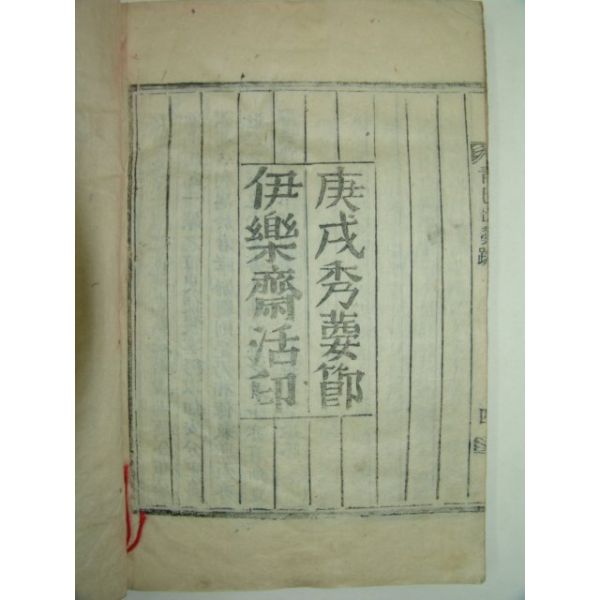 庚戌秀葽節
伊樂齋活印
四